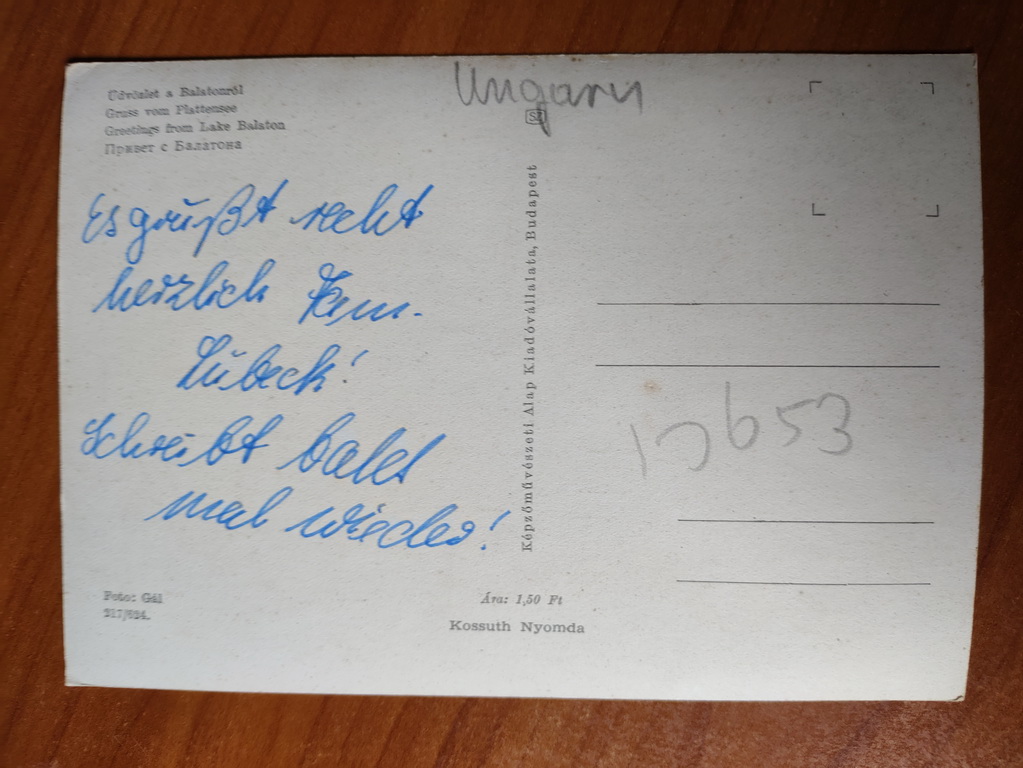 Üdvözlet a Balatonról
Gruss vom Plattensee
Greetings from Lake Balaton
Привет с Балатона
Ungarn
SZ
Es grüßt recht
herzlich Fam.
Lübeck!
Schreibt bald
mal wieder!
Képzőművészeti Alap Kiadóvállalata, Budapest
Foto: Gál
Ára: 1,50 Ft
Kossuth Nyomda